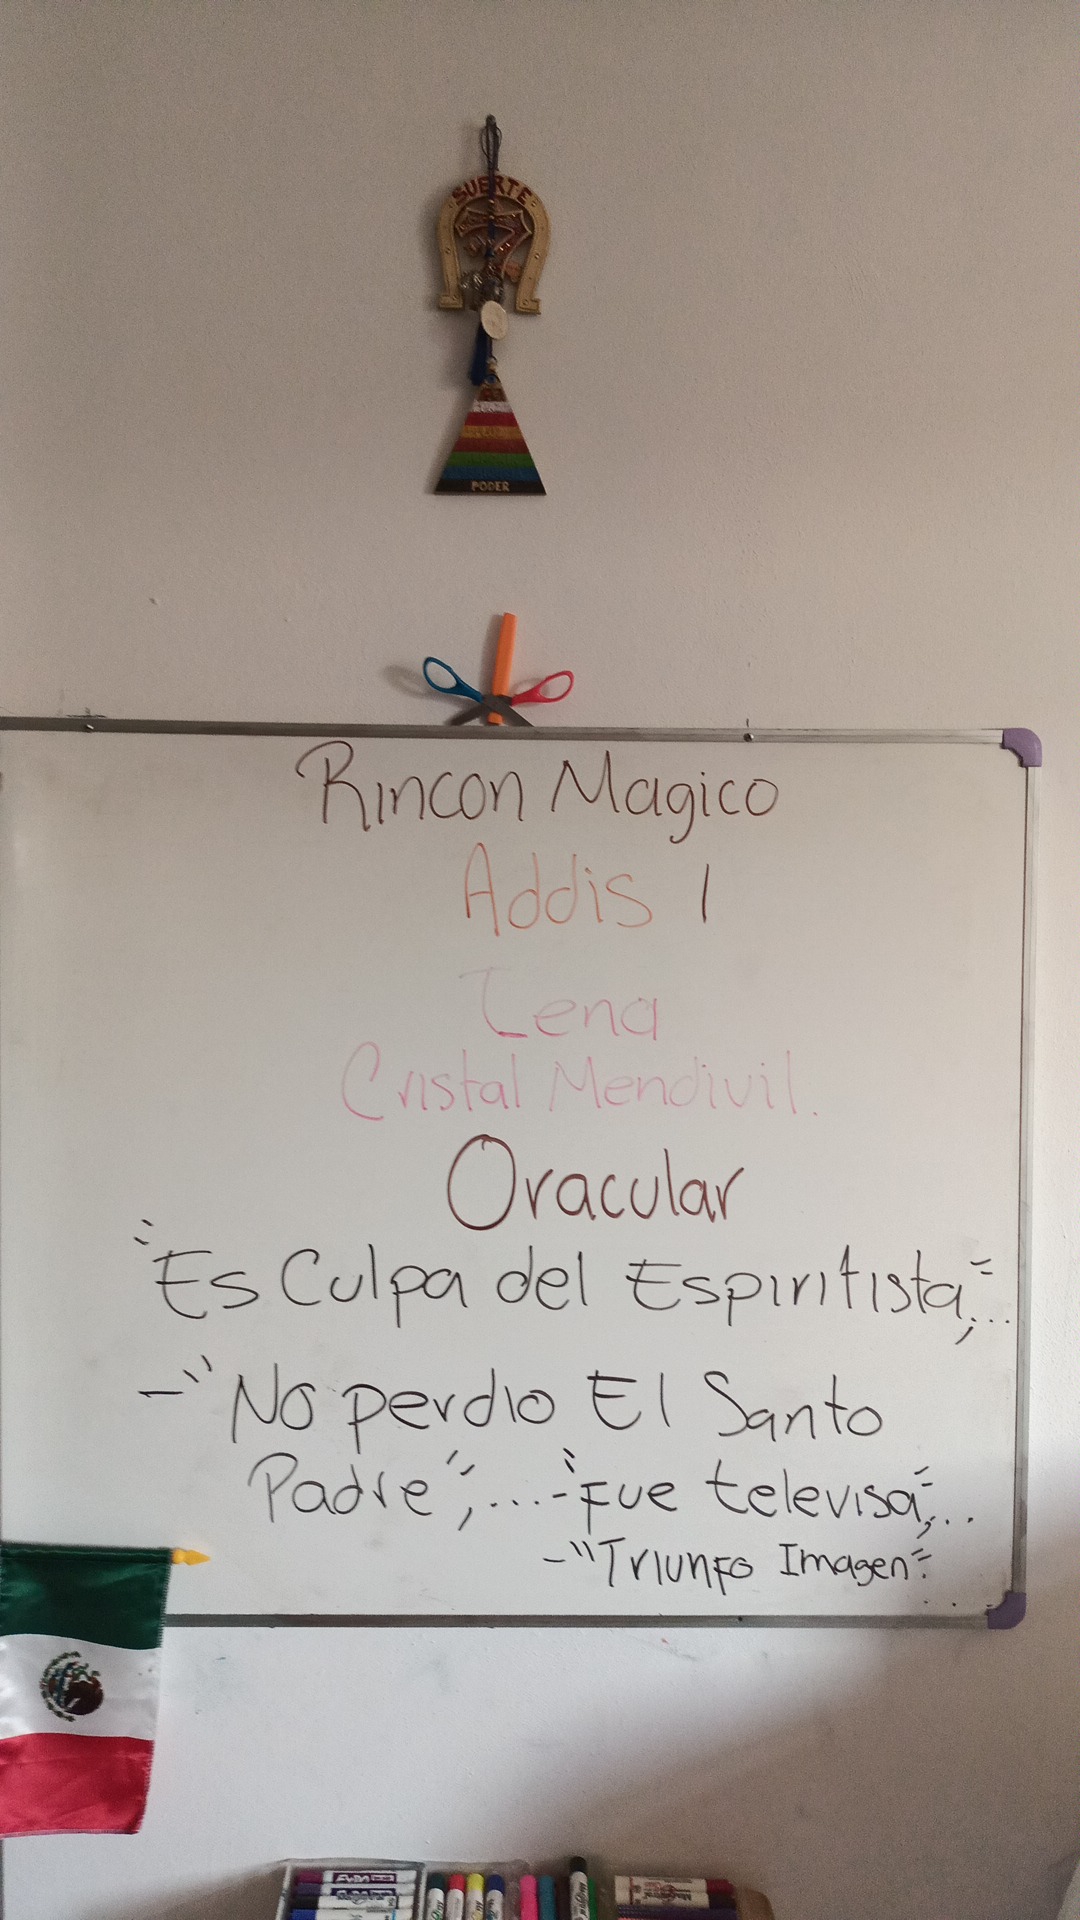 SUERTE
7
PODER
Rincon Magico
Addis 1
Tena
Cristal Mendivil.
Oracular
"Es Culpa del Espiritista,"...
-"No perdio El Santo
Padre";...-"Fue televisa,"...
-"Triunfo Imagen".